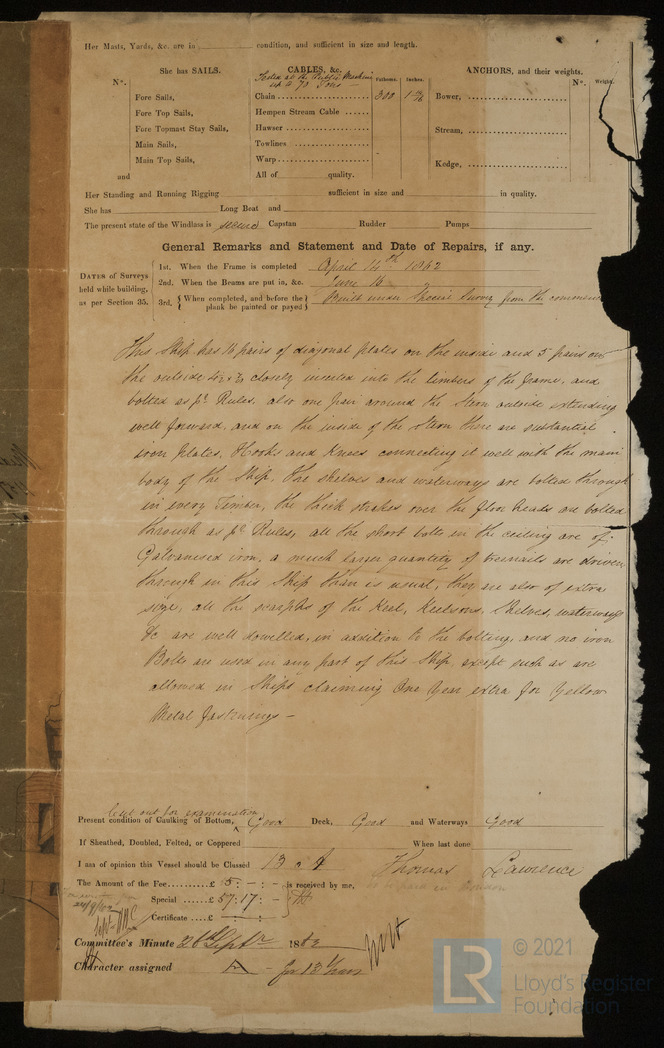 Her Masts, Yards, &c. are in condition, and sufficient in size and length.
She has SAILS.
CABLES, &c.
ANCHORS, and their weights.
Nº.
Tested at the Public Machine
up to 73 Tons
Fathoms. Inches.
Nº. Weight.
Fore Sails,
Fore Top Sails,
Fore Topmast Stay Sails,
Main Sails,
Main Top Sails,
and
Chain 300
Hempen Stream Cable
Hawser
Towlines
Warp
All of quality.
Bower,
Stream,
Kedge,
Her Standing and Running Rigging sufficient in size and in quality.
She has Long Boat and
The present state of the Windlass is Capstan Rudder Pumps
General Remarks and Statement and Date of Repairs, if any.
DATES of Surveys
held while building,
as per Section 35.
1st. When the Frame is completed April 14th 1862
2nd. When the Beams are put in, &c. June 16
3rd. When completed, and before the
plank be painted or payed
Built under Special Survey from the commence
This Ship has 16 pairs of diagonal plates on the inside and 5 pairs on
the outside closely inserted into the timbers of the frame, and
bolted as pr Rules, also one pair around the Stern outside extending
well forward, and on the inside of the Stern there are substantial
iron plates, Hooks and Knees connecting it well with the main
body of the Ship. The shelves and waterways are bolted through
in every Timber, the thick strakes over the floor heads are bolted
through as pr Rules, all the short bolts in the ceiling are of
Galvanised iron, a much larger quantity of treenails are driven
through in this Ship than is usual, they are also of extra
size, all the scarphs of the Keel, Keelsons, Shelves, waterways
&c are well dowelled, in addition to the bolting, and no iron
Bolts are used in any part of this Ship, except such as are
allowed in Ships claiming One Year extra for Yellow
Metal fastenings —
Cut out for examination
Present condition of Caulking of Bottom, Good Deck, Good and Waterways Good
If Sheathed, Doubled, Felted, or Coppered When last done
I am of opinion this Vessel should be Classed 13 A Thomas Lawrence
The Amount of the Fee £ 5 : - : - is received by me,
Special £ 57 : 17 : -
Certificate £ - : - : -
Committee's Minute 26th Septr 1862
Character assigned A - for 13 Years
LR
© 2021
Lloyd's Register
Foundation